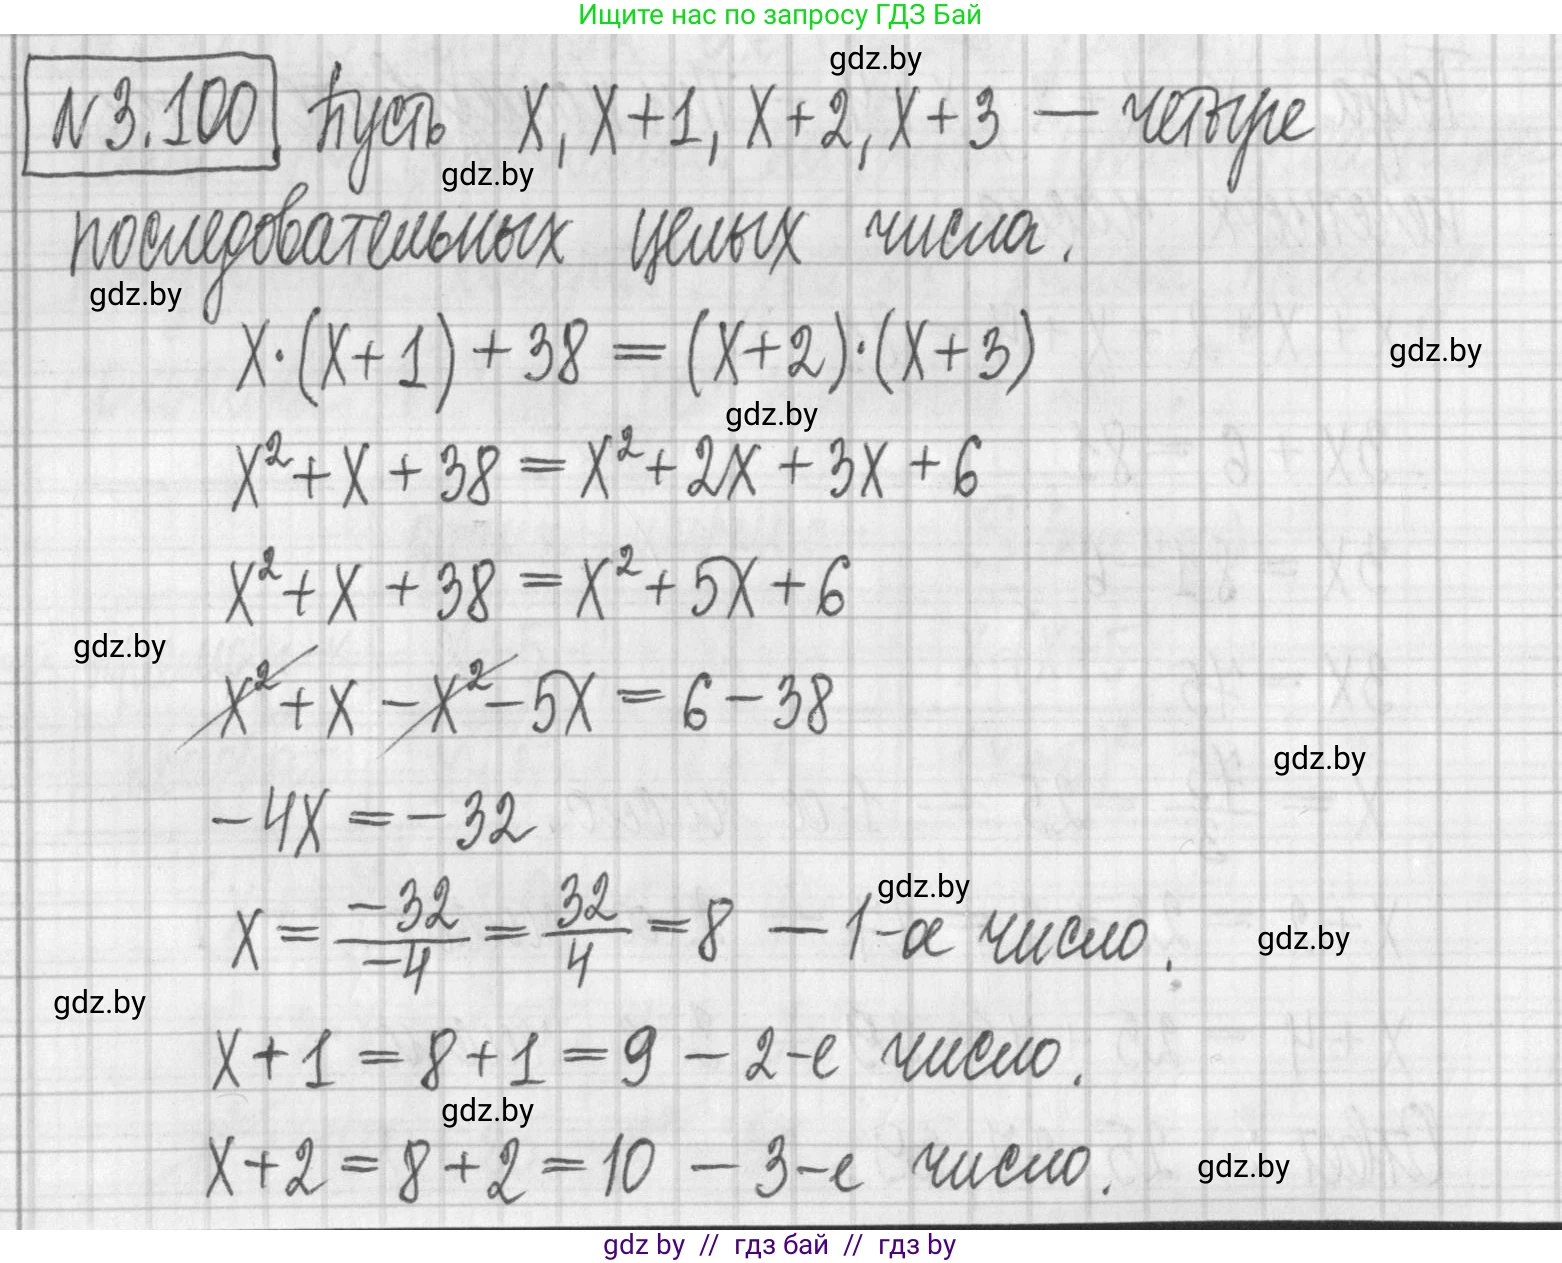 Ищите нас по запросу ГДЗ Бай
gdz.by
№3.100 Пусть x, x+1, x+2, x+3 — четыре
gdz.by
последовательных целых числа.
gdz.by
x·(x+1)+38=(x+2)·(x+3)
gdz.by
gdz.by
x²+x+38=x²+2x+3x+6
x²+x+38=x²+5x+6
gdz.by
x²+x-x²-5x=6-38
gdz.by
-4x=-32
gdz.by
x=-32/-4=32/4=8 — 1-ое число.
gdz.by
gdz.by
x+1=8+1=9 — 2-е число.
gdz.by
x+2=8+2=10 — 3-е число.
gdz.by
gdz by // гдз бай // гдз by